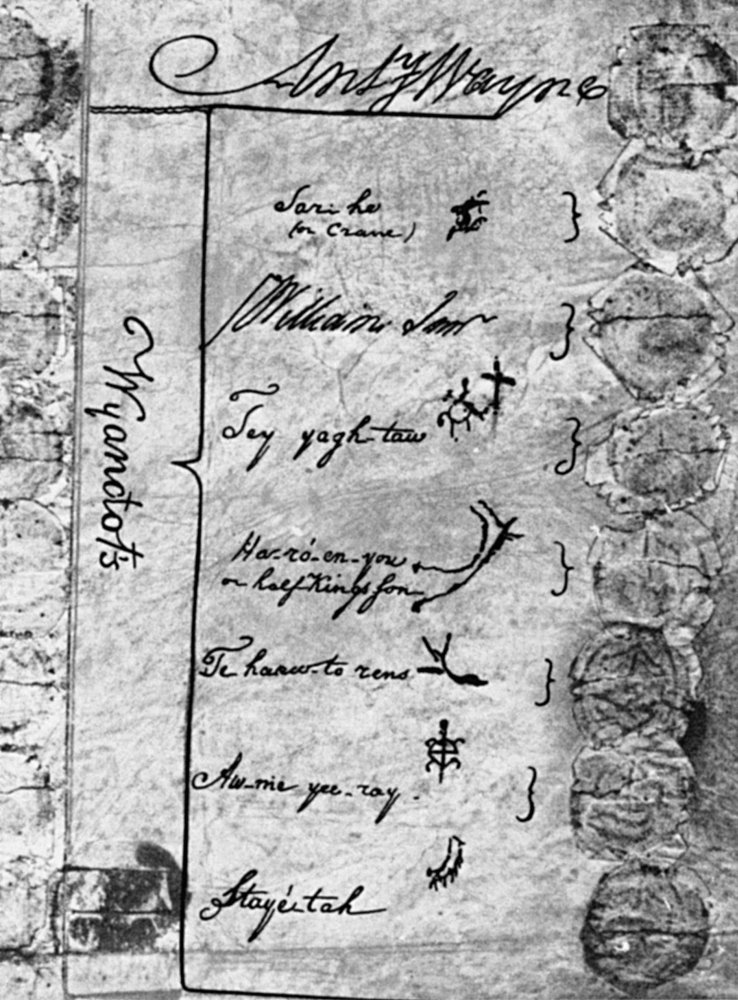 Anty Wayne
Wyandots
Tarihe
(or Crane)
William Sur
Tey yagh-taw
Ha-ró-en-you
or half King's son
Te haaw-to rens
Aw-me yee-ray
Stayé-tah